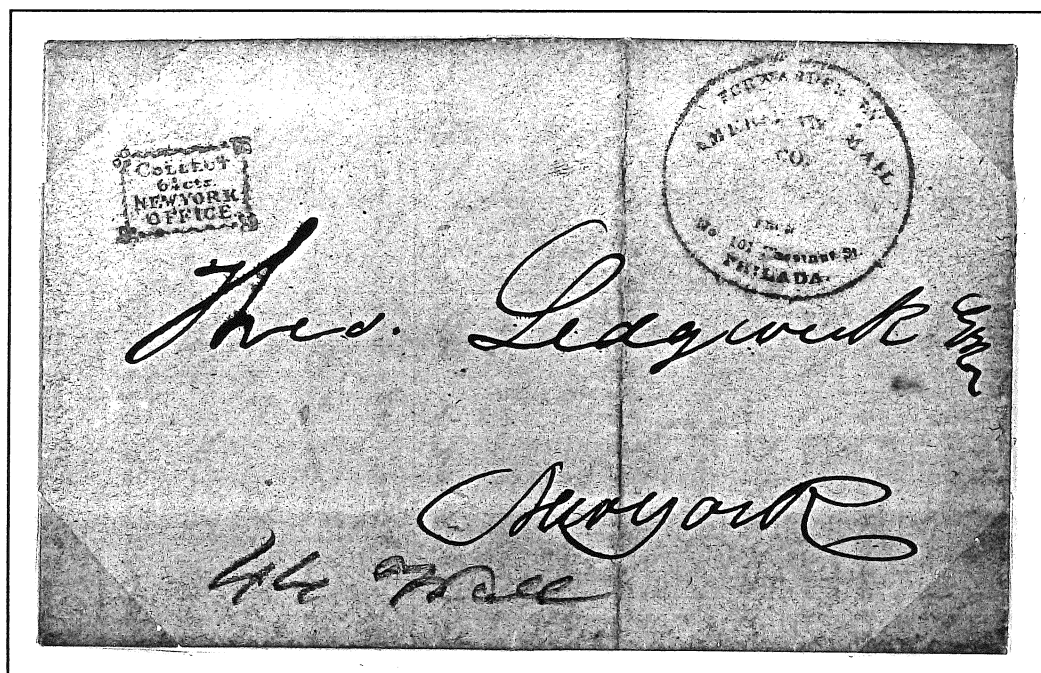 COLLECT
6¼cts.
NEWYORK
OFFICE.
FORWARDED BY
AMERICAN MAIL
CO.
FROM
No. 101 Chestnut St.
PHILADA.
Theo. Sedgwick Esq
New York
44 Wall